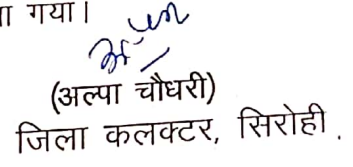 ा गया।
(अल्पा चौधरी)
जिला कलक्टर, सिरोही.